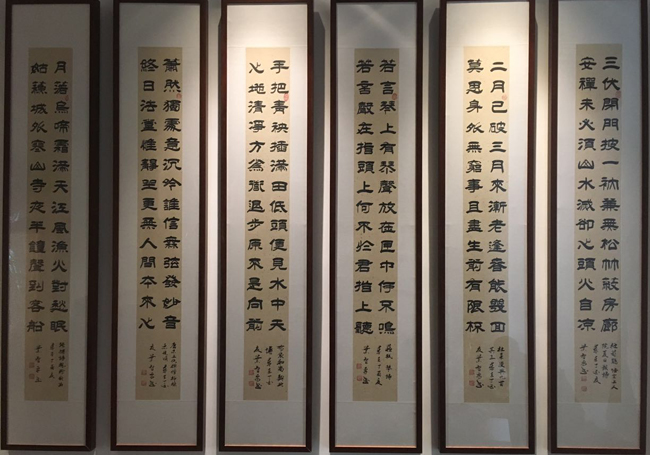 三伏閉門披一衲兼無松竹蔭房廊
安禪未必須山水滅卻心頭火自涼
二月已破三月來漸老逢春能幾回
莫思身外無窮事且盡生前有限杯
若言琴上有琴聲放在匣中何不鳴
若言聲在指頭上何不於君指上聽
手把青秧插滿田低頭便見水中天
心地清淨方為道退步原來是向前
蕭然獨處意沉吟誰信無弦發妙音
終日法堂唯靜坐更無人問本來心
月落烏啼霜滿天江風漁火對愁眠
姑蘇城外寒山寺夜半鐘聲到客船